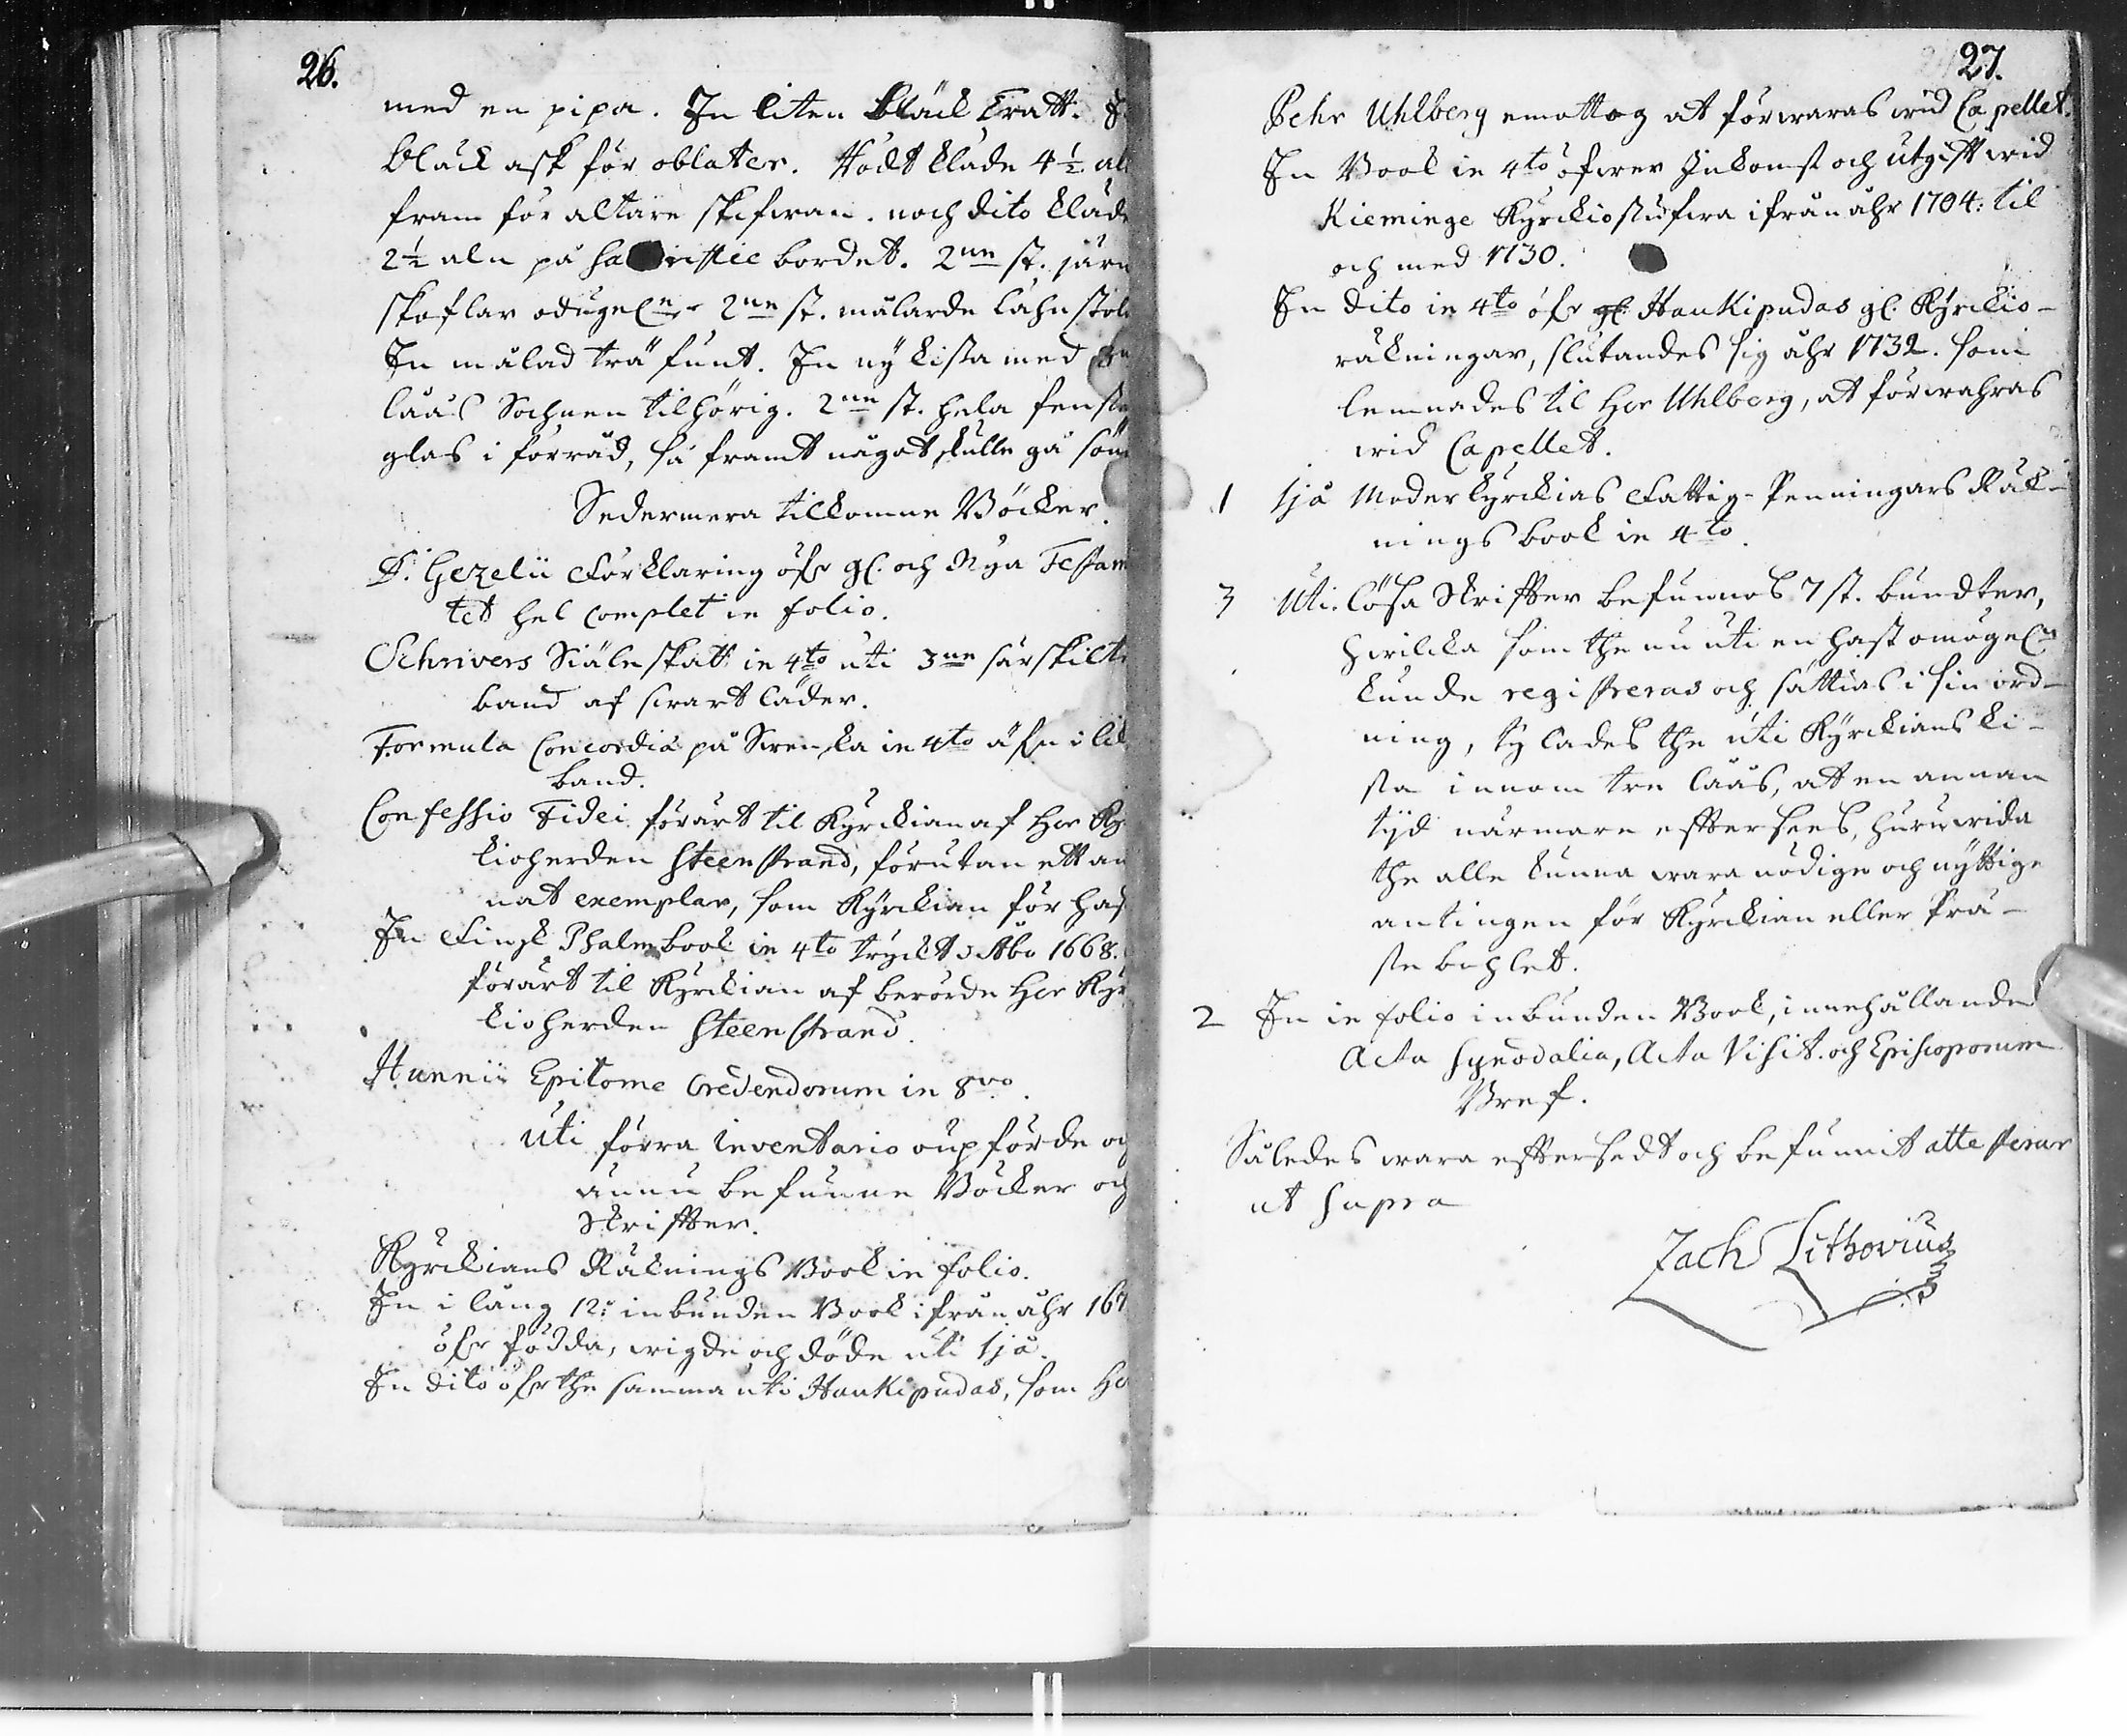 26.
med en pipa. En liten bläck tratt. E
bläck ask för oblater. Rödt kläde 4 1/2 al
fram för altare skifwan. noch dito kläde
2 1/2 aln på sa ristie bordet. 2ne st. järn
skoflar odugeln. 2ne st. målarde låhnstola
En målad trä funt. En ny kista med 3ne
låås Sochnen tilhörig. 2ne st. hela fenster
glas i förråd, så framt något skulle gå sön
Sedermera tilkomne Böcker.
D. Gezelii Förklaring öfr gl. och Nya Testam
tet hel complet in folio.
Schrivers Siäleskatt in 4to uti 3ne särskilte
band af swart läder.
Formula Concordiæ på Swenska in 4to äfn i lik
band.
Confessio Fidei förärt til Kyrckian af Her Ky
kioherden Steenstrand, förutan ett an
nat exemplar, som Kyrckian för haf
En Finsk Psalmbook in 4to tryckt i Åbo 1668.
förärt til Kyrckian af berörde Her Kyr
kioherden Steenstrand.
Hunnii Epitome Credendorum in 8vo.
Uti förra inventario oupförde och
ännu befunne Böcker och
Skriffter.
Kyrckians Räknings Book in folio.
En i lång 12:o inbunden Book ifrån åhr 167
öfr födda, wigde och döde uti Ijå.
En dito öfr the samma uti Haukipudas, som He
27.
Pehr Uhlberg emottog at förwaras wid Capellet.
En Book in 4to öfwer Inkomst och utgift wid
Kieminge Kyrckiostufwa ifrån åhr 1704: til
och med 1730.
En dito in 4to öfr gl. Haukipudas gl. Kyrckio-
räkningar, slutandes sig åhr 1732. som
lemnades til Her Uhlberg, at förwahras
wid Capellet.
1 Ijå Moderkyrckias Fattig-Penningars Räk-
nings book in 4to.
3 Uti lösa Skriffter befunnos 7 st. bundter,
hwilcka som the nu uti en hast omögeln
kunde registreras och sättias i sin ord-
ning, ty lades the uti Kyrckians ki-
sta innom tre låås, att en annan
tijd närmare efftersees, huruwida
the alle kunna wara nödige och nyttige
antingen för Kyrckian eller Prä-
stebohlet.
2 En in folio inbunden Book, innehållande
Acta Synodalia, Acta Visit. och Episcoporum
Bref.
Således wara efftersedt och befunnit attesterar
ut supra
Zach Lithovius